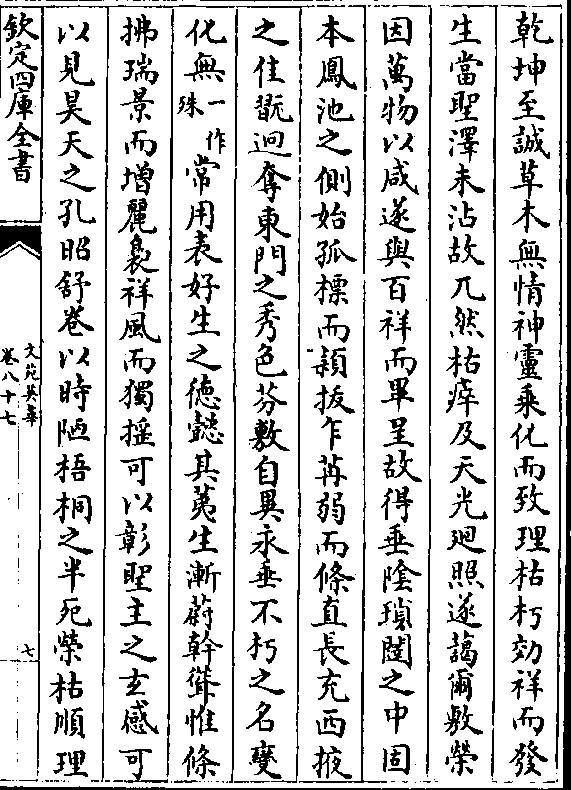 乾坤至誠草木無情神靈乘化而致理枯朽効祥而發
生當聖澤未沾故兀然枯瘁及天光廻照遂藹爾敷榮
因萬物以咸遂與百祥而畢呈故得垂陰瑣闥之中固
本鳳池之側始孤標而頴拔乍苒弱而條直長充西掖
之佳翫迥奪東門之秀色芬敷自異永垂不朽之名變
化無一作殊常用表好生之德懿其荑生漸蔚幹聳惟條
拂瑞景而增麗裊祥風而獨揺可以彰聖主之玄感可
以見昊天之孔昭舒卷以時陋梧桐之半死榮枯順理
欽定四庫全書
文苑英華
卷八十七
七